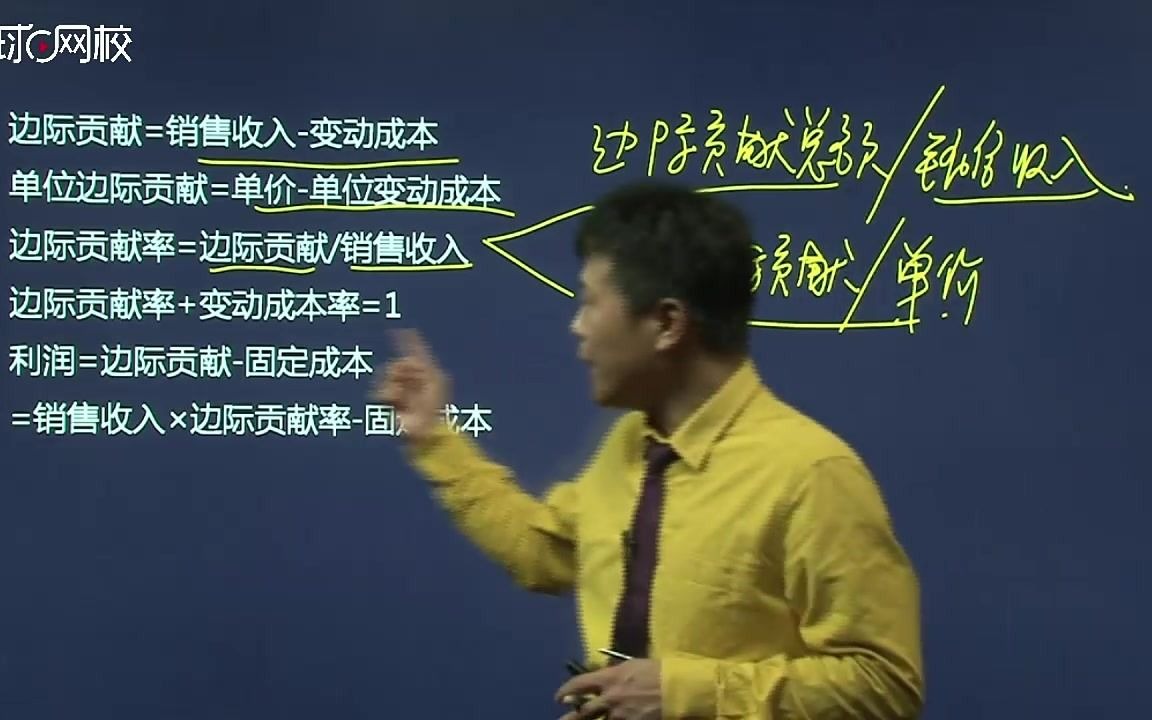 球网校
边际贡献=销售收入-变动成本
单位边际贡献=单价-单位变动成本
边际贡献率=边际贡献/销售收入
边际贡献率+变动成本率=1
利润=边际贡献-固定成本
=销售收入×边际贡献率-固定成本
边际贡献总额/销售收入
际贡献/单价